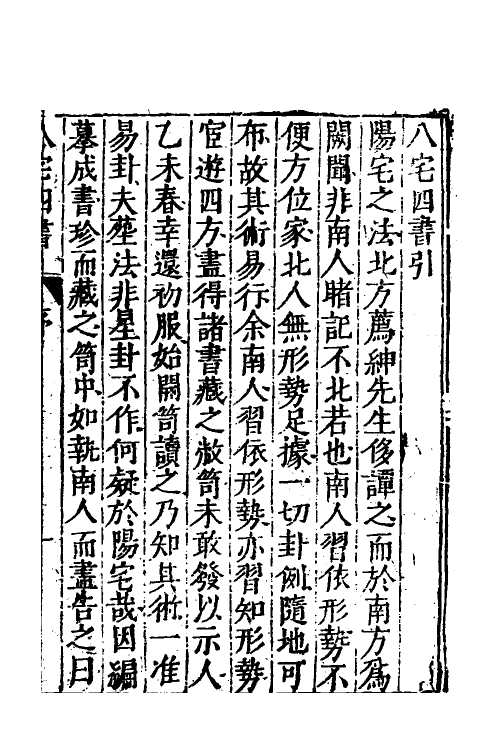 八宅四書引
陽宅之法北方薦紳先生侈譚之而於南方為
闕聞非南人睹記不北若也南人習依形勢不
便方位家北人無形勢足據一切卦例隨地可
布故其術易行余南人習依形勢亦習知形勢
宦遊四方盡得諸書藏之敝笥未敢發以示人
乙未春幸還初服始開笥讀之乃知其術一准
易卦夫塟法非星卦不作何疑於陽宅哉因編
摹成書珍而藏之笥中如執南人而盡告之曰
八宅四書 序